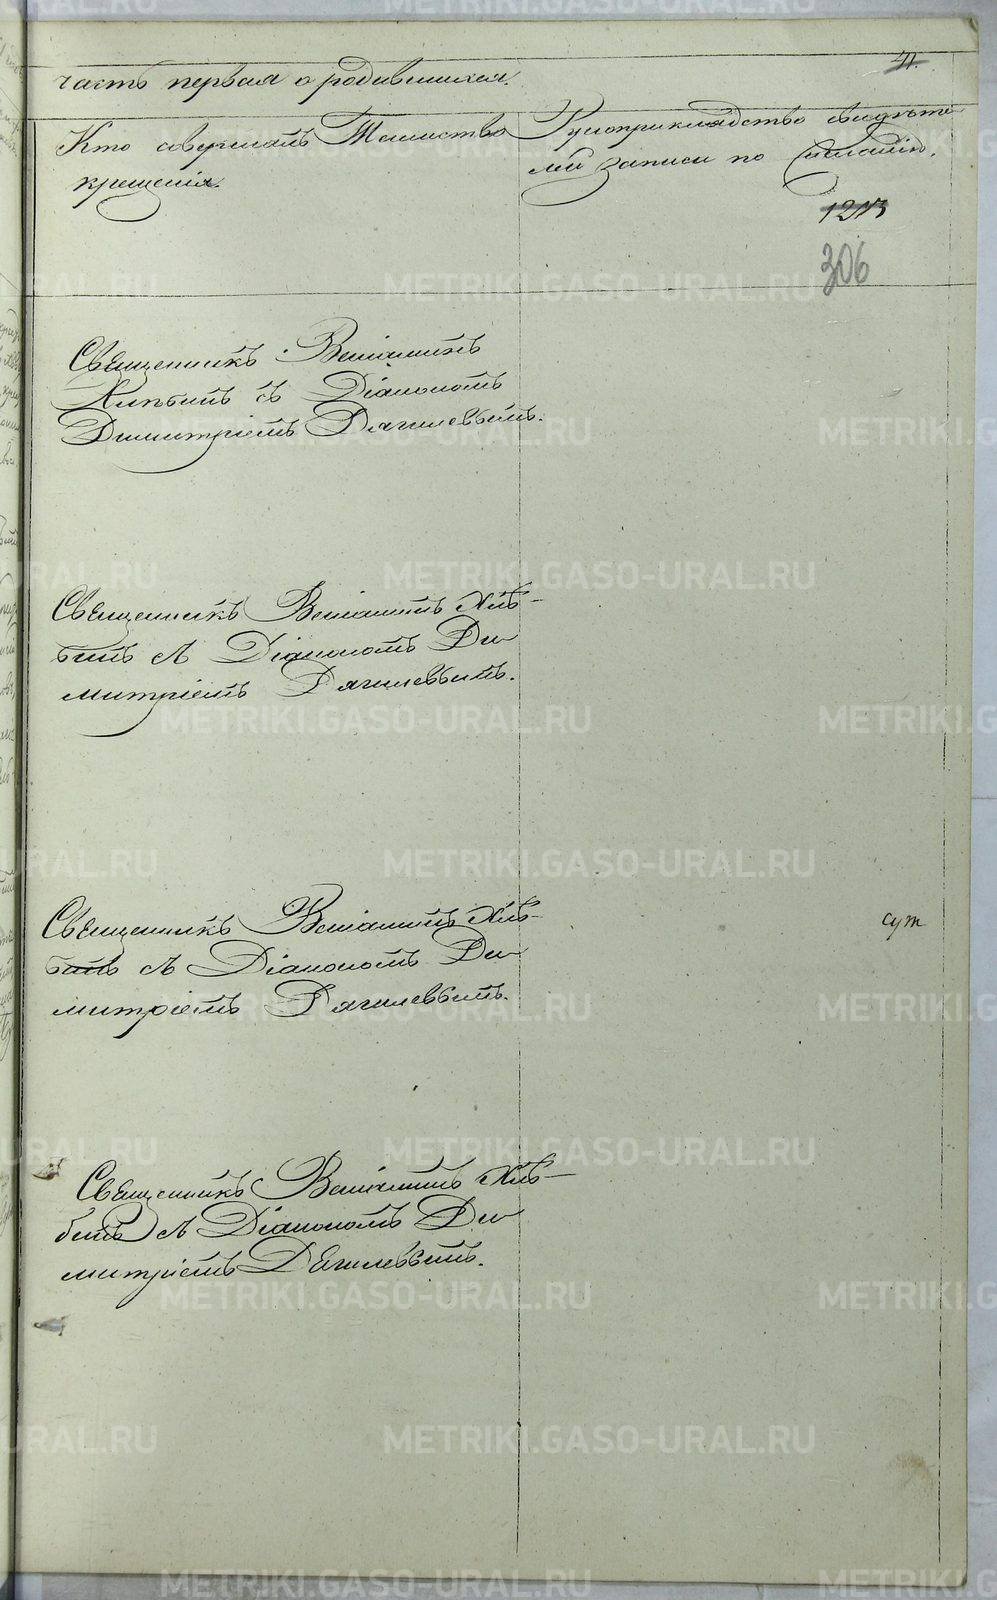 41.
часть первая о родившихся.
Кто совершалъ Таинство
крещенія.
Рукоприкладство свидѣте
лей записи по желанію.
1213
306
Священникъ Веніаминъ
Хлѣбинъ съ Діакономъ
Димитріемъ Дягилевымъ.
Священникъ Веніаминъ Хлѣ-
бинъ съ Діакономъ Ди
митріемъ Дягилевымъ.
Священникъ Веніаминъ Хлѣ-
бинъ съ Діакономъ Ди
митріемъ Дягилевымъ.
сут
Священникъ Веніаминъ Хлѣ-
бинъ съ Діакономъ Ди
митріемъ Дегилевымъ.
METRIKI.GASO-URAL.RU